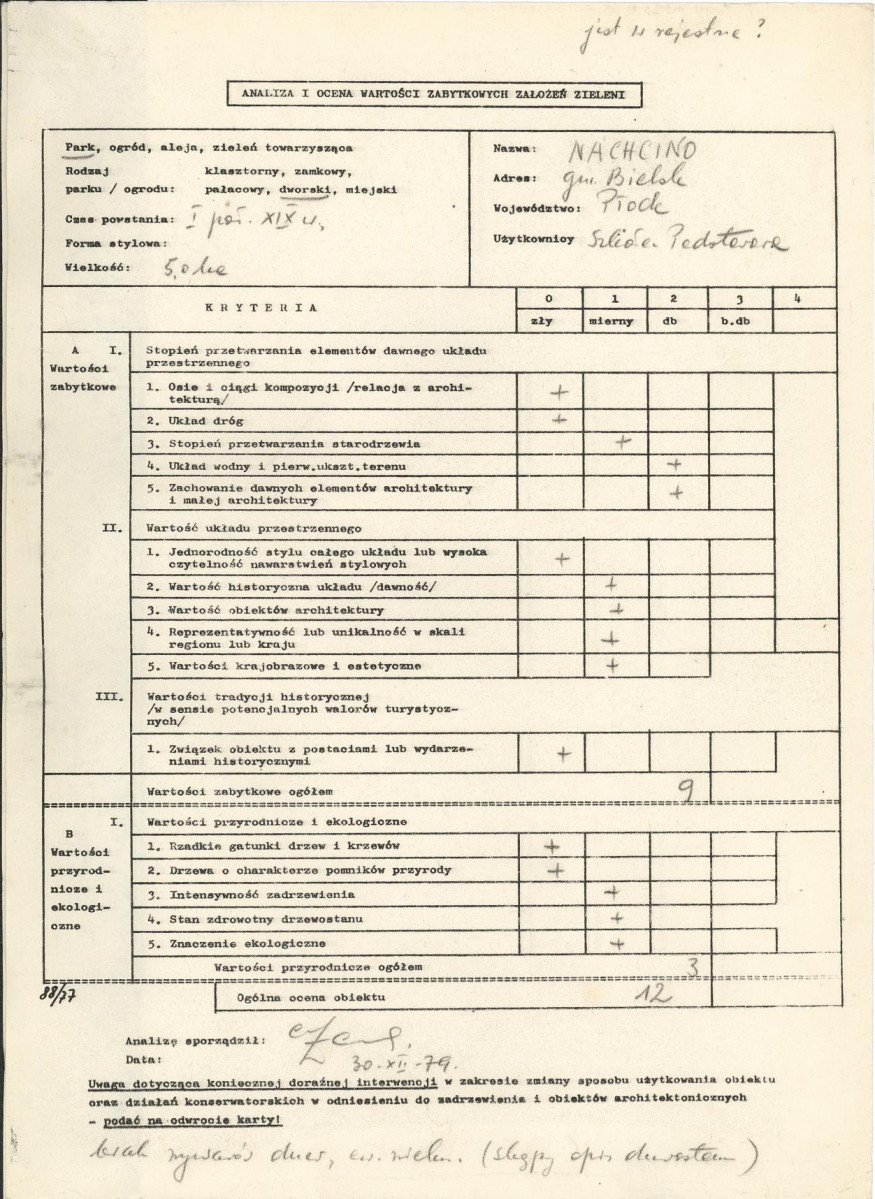 jest w rejestrze?
ANALIZA I OCENA WARTOŚCI ZABYTKOWYCH ZAŁOŻEŃ ZIELENI
Park, ogród, aleja, zieleń towarzysząca
Rodzaj klasztorny, zamkowy,
parku / ogrodu: pałacowy, dworski, miejski
Czas powstania: I poł. XIX w.
Forma stylowa:
Wielkość: 5,0 ha
Nazwa: NACHCINO
Adres: gm. Bielsk
Województwo: Płock
Użytkownioy Szkoła Podstawowa
KRYTERIA
0 1 2 3 4
zły mierny db b.db
A I. Stopień przetwarzania elementów dawnego układu
Wartości przestrzennego
zabytkowe
1. Osie i ciągi kompozycji /relacja z archi-
tekturą/ +
2. Układ dróg +
3. Stopień przetwarzania starodrzewia +
4. Układ wodny i pierw.ukszt.terenu +
5. Zachowanie dawnych elementów architektury
i małej architektury +
II. Wartość układu przestrzennego
1. Jednorodność stylu całego układu lub wysoka
czytelność nawarstwień stylowych +
2. Wartość historyczna układu /dawność/ +
3. Wartość obiektów architektury +
4. Reprezentatywność lub unikalność w skali
regionu lub kraju +
5. Wartości krajobrazowe i estetyczne +
III. Wartości tradycji historycznej
/w sensie potencjalnych walorów turystycz-
nych/
1. Związek obiektu z postaciami lub wydarze-
niami historycznymi +
Wartości zabytkowe ogółem 9
I. Wartości przyrodnicze i ekologiczne
B
Wartości
przyrod-
nicze i
ekologi-
czne
1. Rzadkie gatunki drzew i krzewów +
2. Drzewa o charakterze pomników przyrody +
3. Intensywność zadrzewienia +
4. Stan zdrowotny drzewostanu +
5. Znaczenie ekologiczne +
Wartości przyrodnicze ogółem 3
88/77
Ogólna ocena obiektu 12
Analizę sporządził:
Data: 30.XII.79.
Uwaga dotycząca koniecznej doraźnej interwencji w zakresie zmiany sposobu użytkowania obiektu
oraz działań konserwatorskich w odniesieniu do zadrzewienia i obiektów architektonicznych
- podać na odwrocie karty!
brak (skąpy opis )